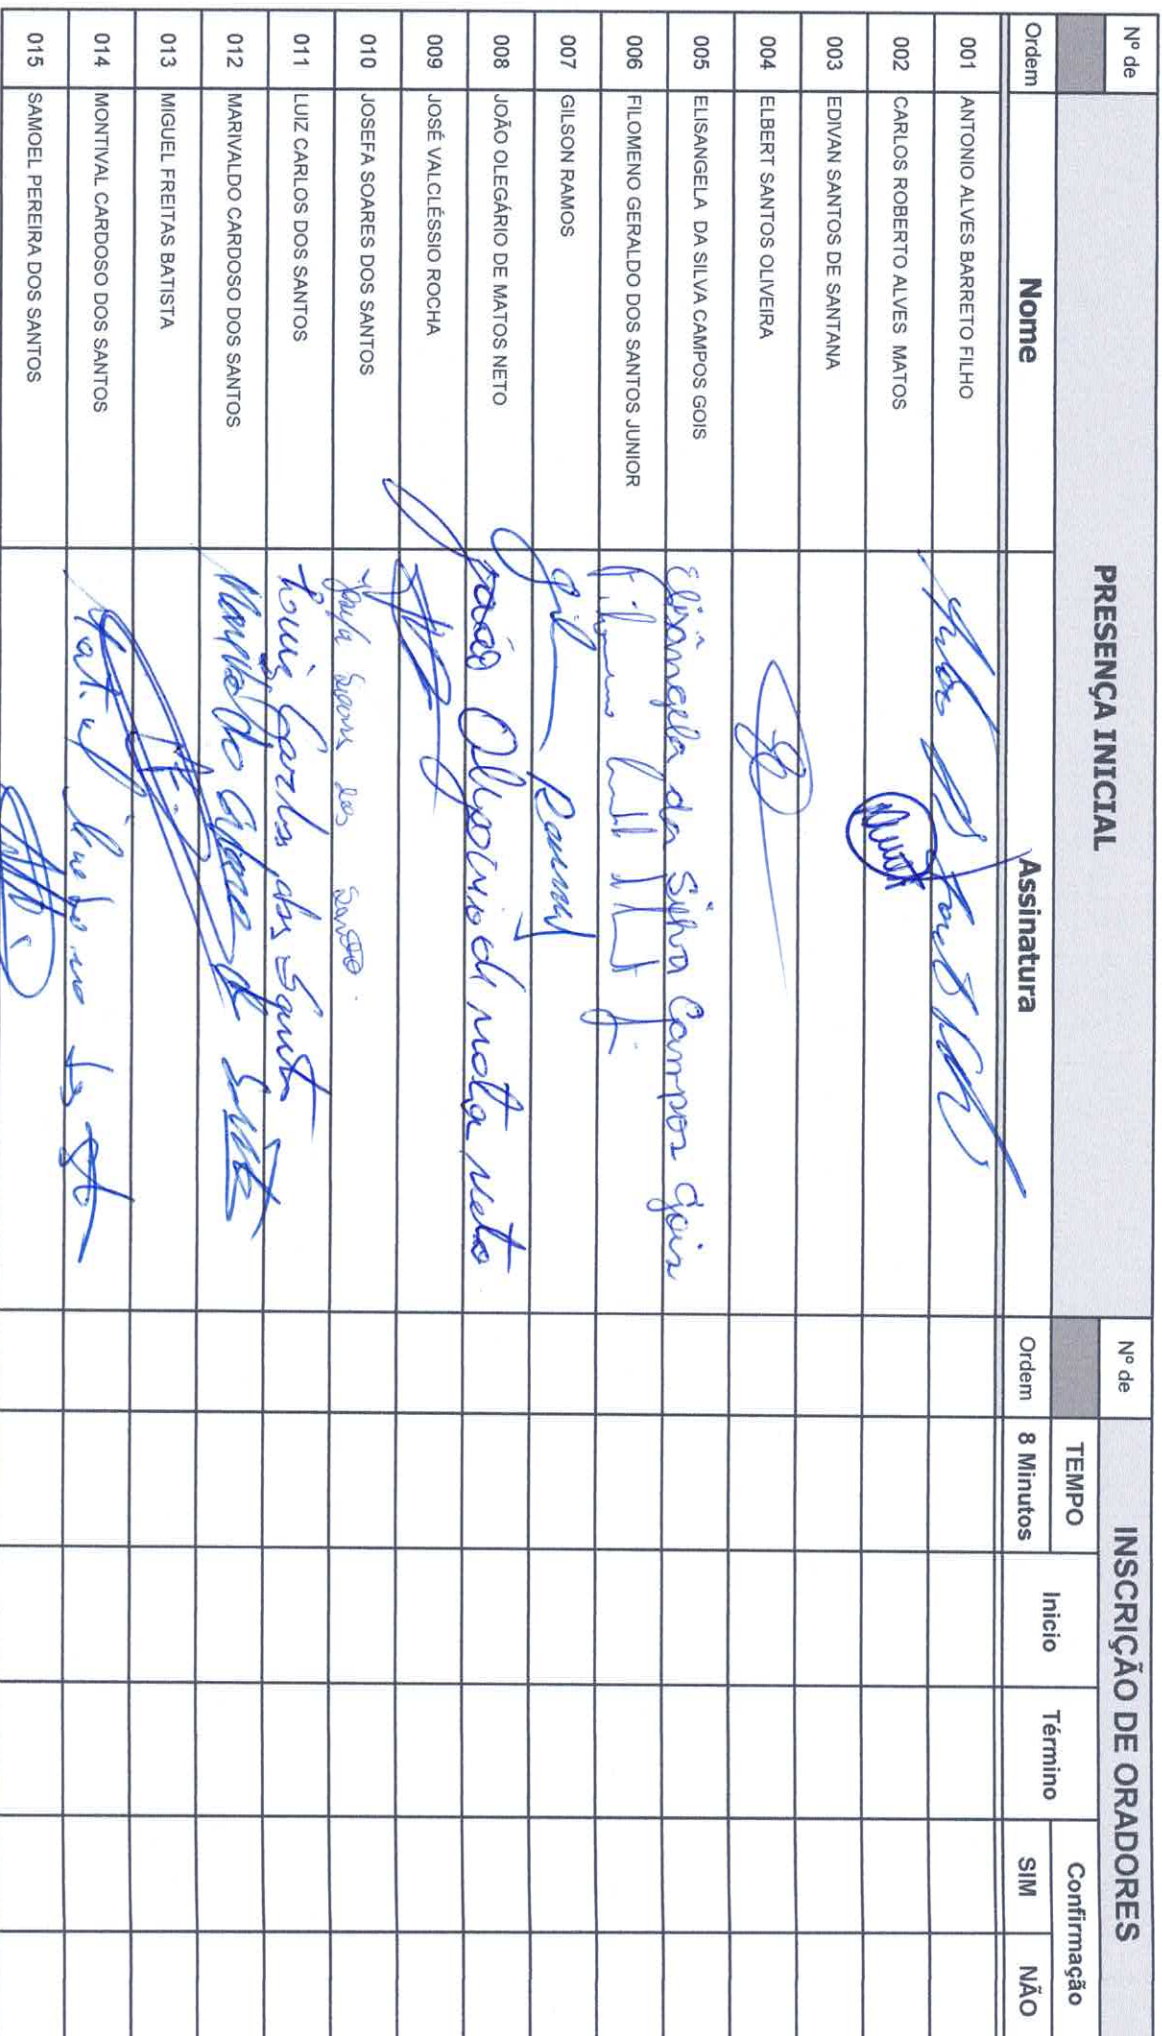 Nº de PRESENÇA INICIAL Nº de INSCRIÇÃO DE ORADORES
TEMPO Inicio Término Confirmação
Ordem Nome Assinatura Ordem 8 Minutos SIM NÃO
001 ANTONIO ALVES BARRETO FILHO
002 CARLOS ROBERTO ALVES MATOS
003 EDIVAN SANTOS DE SANTANA
004 ELBERT SANTOS OLIVEIRA
005 ELISANGELA DA SILVA CAMPOS GOIS Elisângela da Silva Campos Gois
006 FILOMENO GERALDO DOS SANTOS JUNIOR
007 GILSON RAMOS Gil Ramos
008 JOÃO OLEGÁRIO DE MATOS NETO João de neto
009 JOSÉ VALCLÉSSIO ROCHA
010 JOSEFA SOARES DOS SANTOS Josefa Soares dos Santos.
011 LUIZ CARLOS DOS SANTOS Luiz Carlos dos Santos
012 MARIVALDO CARDOSO DOS SANTOS Marivaldo
013 MIGUEL FREITAS BATISTA
014 MONTIVAL CARDOSO DOS SANTOS
015 SAMOEL PEREIRA DOS SANTOS